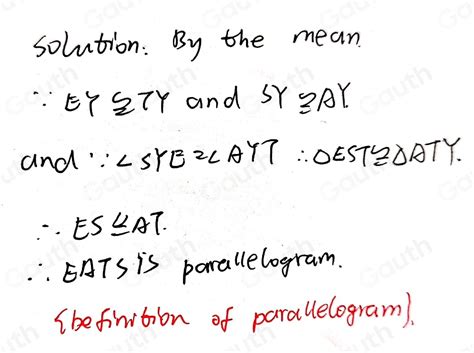 solution: By the mean
∵ EY ≅ TY and SY ≅ AY.
and ∵ ∠SYE = ∠AYT ∴ △EST ≅ △ATY.
∴ ES ≅ AT.
∴ EATS is parallelogram.
{befinition of parallelogram}.